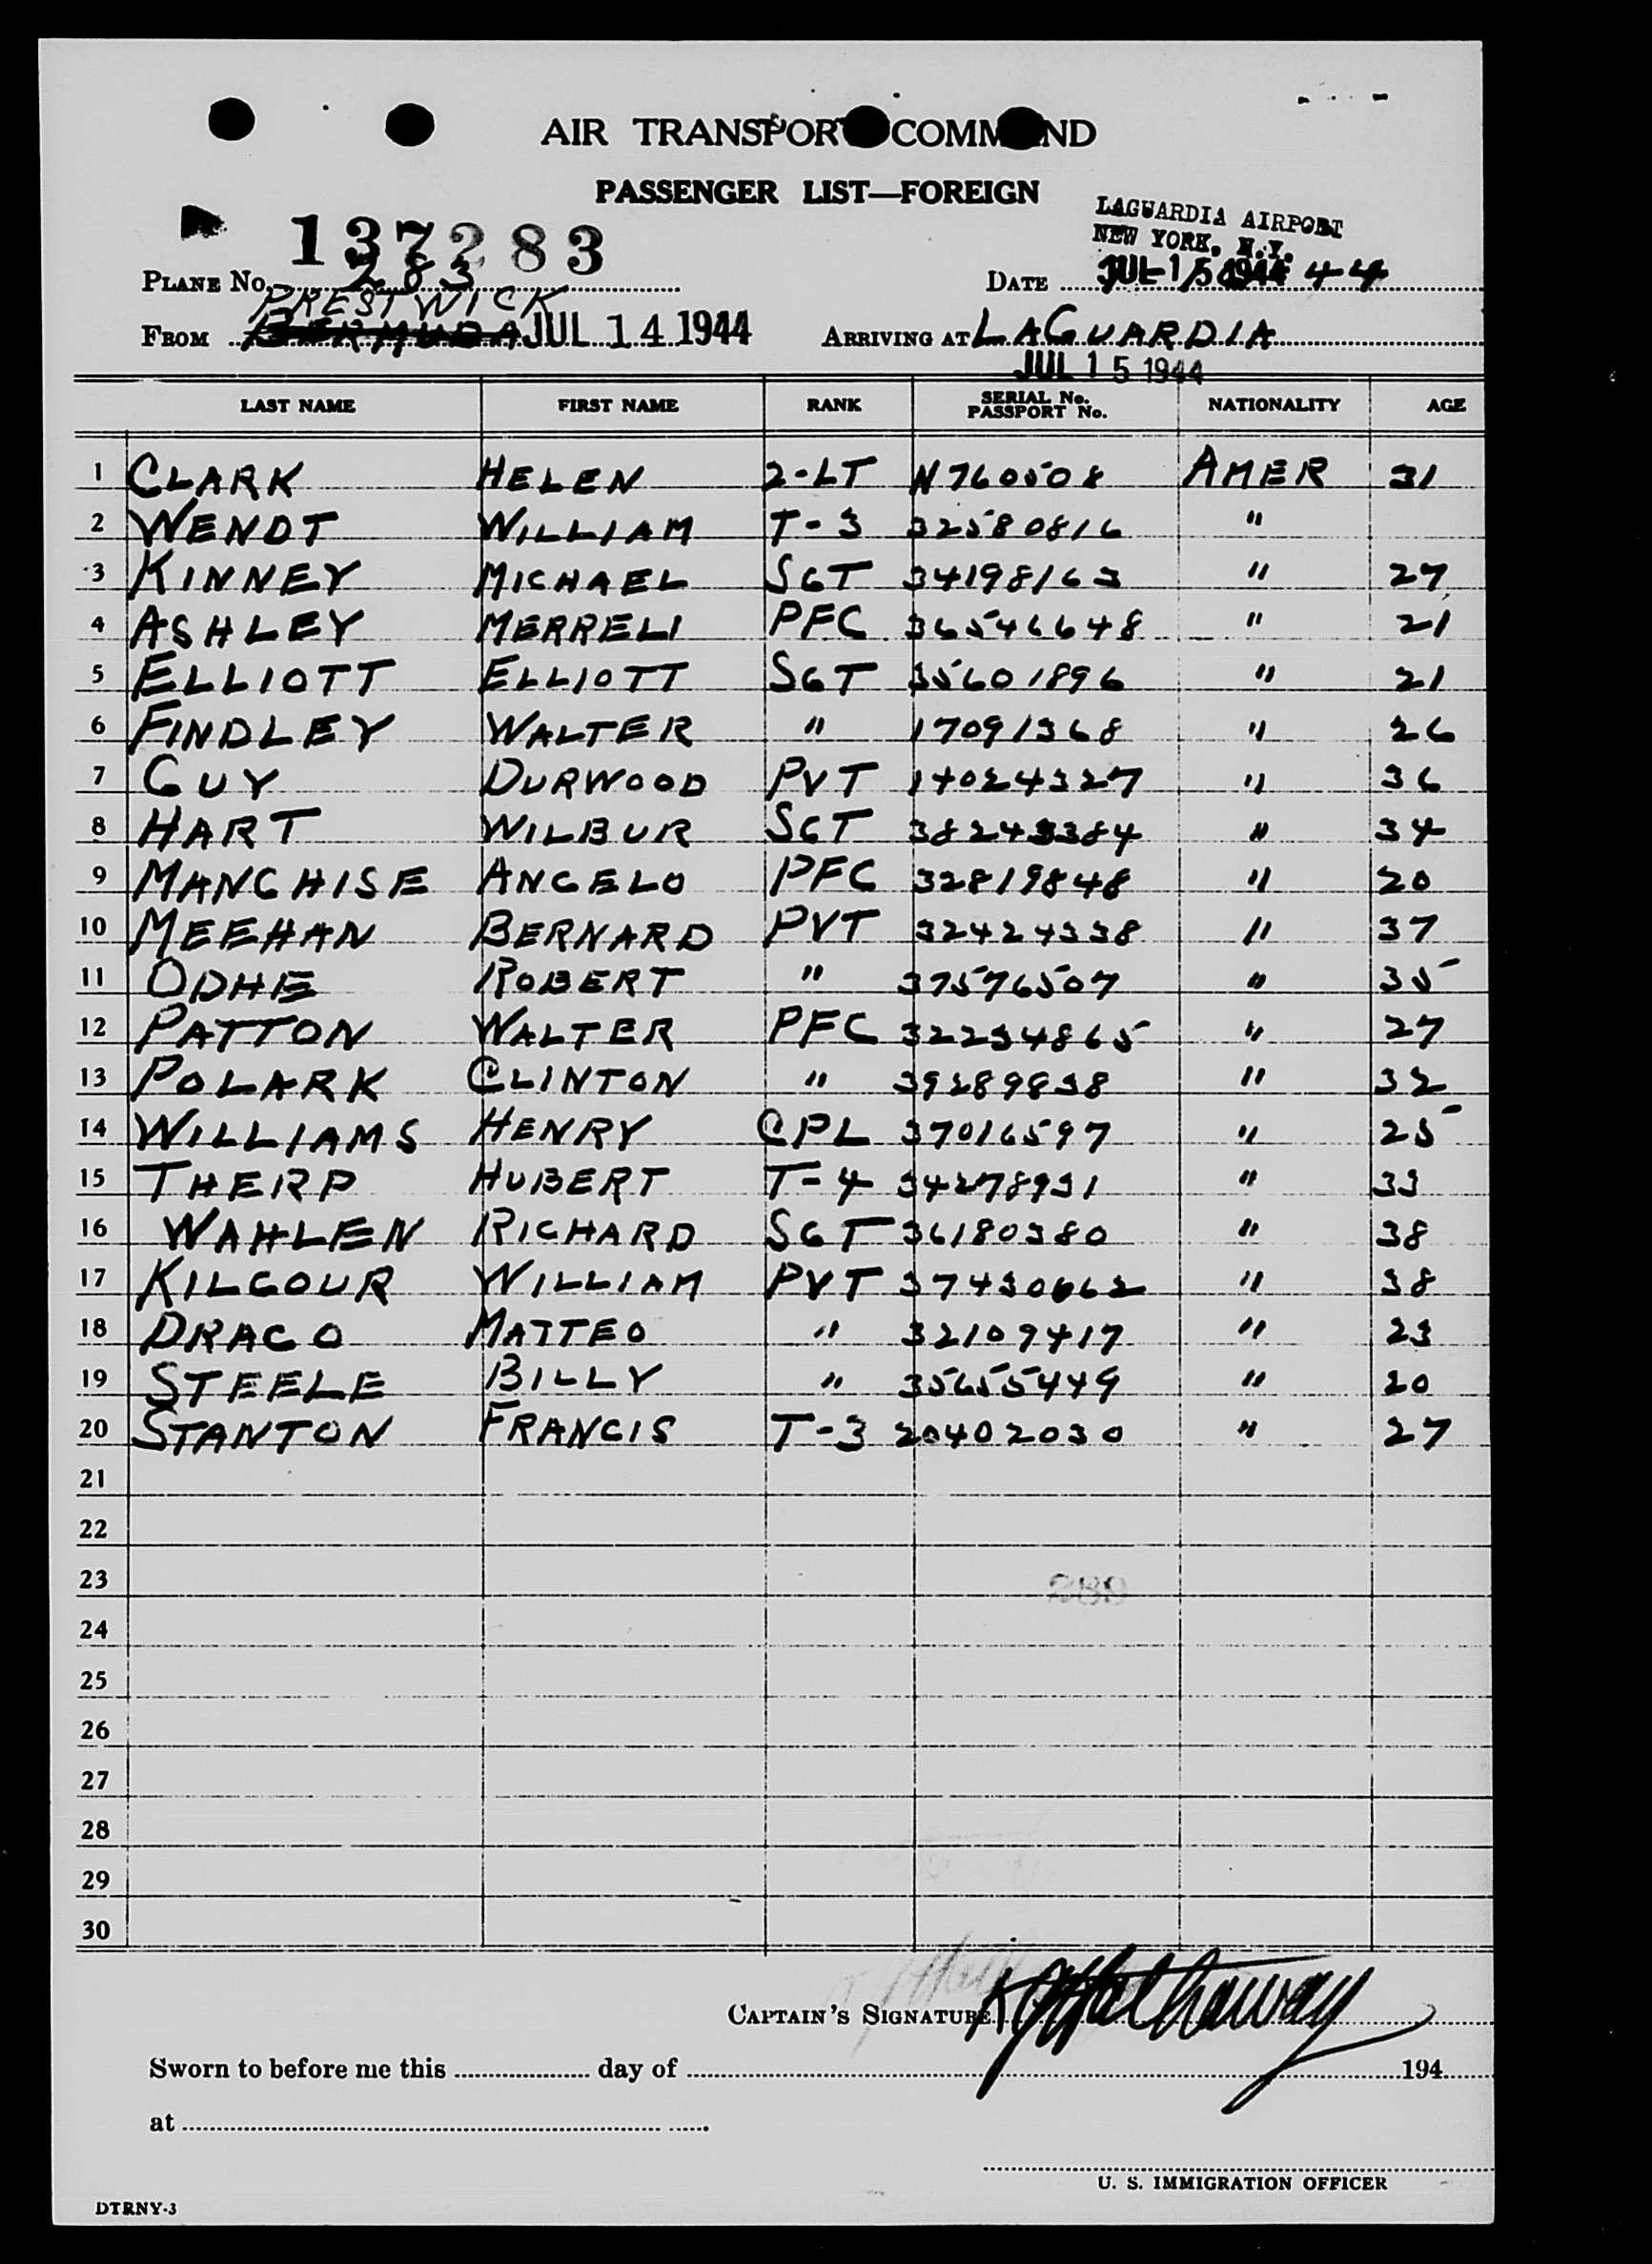 AIR TRANSPORT COMMAND
PASSENGER LIST—FOREIGN
LAGUARDIA AIRPORT
NEW YORK, N.Y.
137283
PLANE No. 283 DATE JUL 15 1944 44
PRESTWICK
FROM BERMUDA JUL 14 1944 ARRIVING AT LAGUARDIA
JUL 15 1944
LAST NAME FIRST NAME RANK SERIAL No. PASSPORT No. NATIONALITY AGE
1 CLARK HELEN 2-LT N760508 AMER 31
2 WENDT WILLIAM T-3 32580816 "
3 KINNEY MICHAEL SGT 34198163 " 27
4 ASHLEY MERRELI PFC 36546648 " 21
5 ELLIOTT ELLIOTT SGT 35601896 " 21
6 FINDLEY WALTER " 17091368 " 26
7 GUY DURWOOD PVT 14024327 " 36
8 HART WILBUR SGT 38243384 " 34
9 MANCHISE ANGELO PFC 32819848 " 20
10 MEEHAN BERNARD PVT 32424338 " 37
11 ODHE ROBERT " 37576507 " 35
12 PATTON WALTER PFC 32234865 " 27
13 POLARK CLINTON " 39289838 " 32
14 WILLIAMS HENRY CPL 37016597 " 25
15 THERP HUBERT T-4 34278931 " 33
16 WAHLEN RICHARD SGT 36180380 " 38
17 KILGOUR WILLIAM PVT 37430662 " 38
18 DRAGO MATTEO " 32109417 " 23
19 STEELE BILLY " 35655449 " 20
20 STANTON FRANCIS T-3 20402030 " 27
21
22
23
24
25
26
27
28
29
30
CAPTAIN'S SIGNATURE Hathaway
Sworn to before me this day of 194
at
U. S. IMMIGRATION OFFICER
DTRNY-3